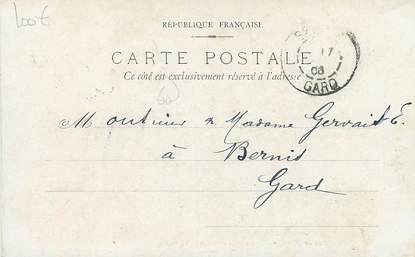 100€
RÉPUBLIQUE FRANÇAISE
CARTE POSTALE
Ce côté est exclusivement réservé à l'adresse
17
03
GARD
& Madame Gervais E.
à Bernis
Gard